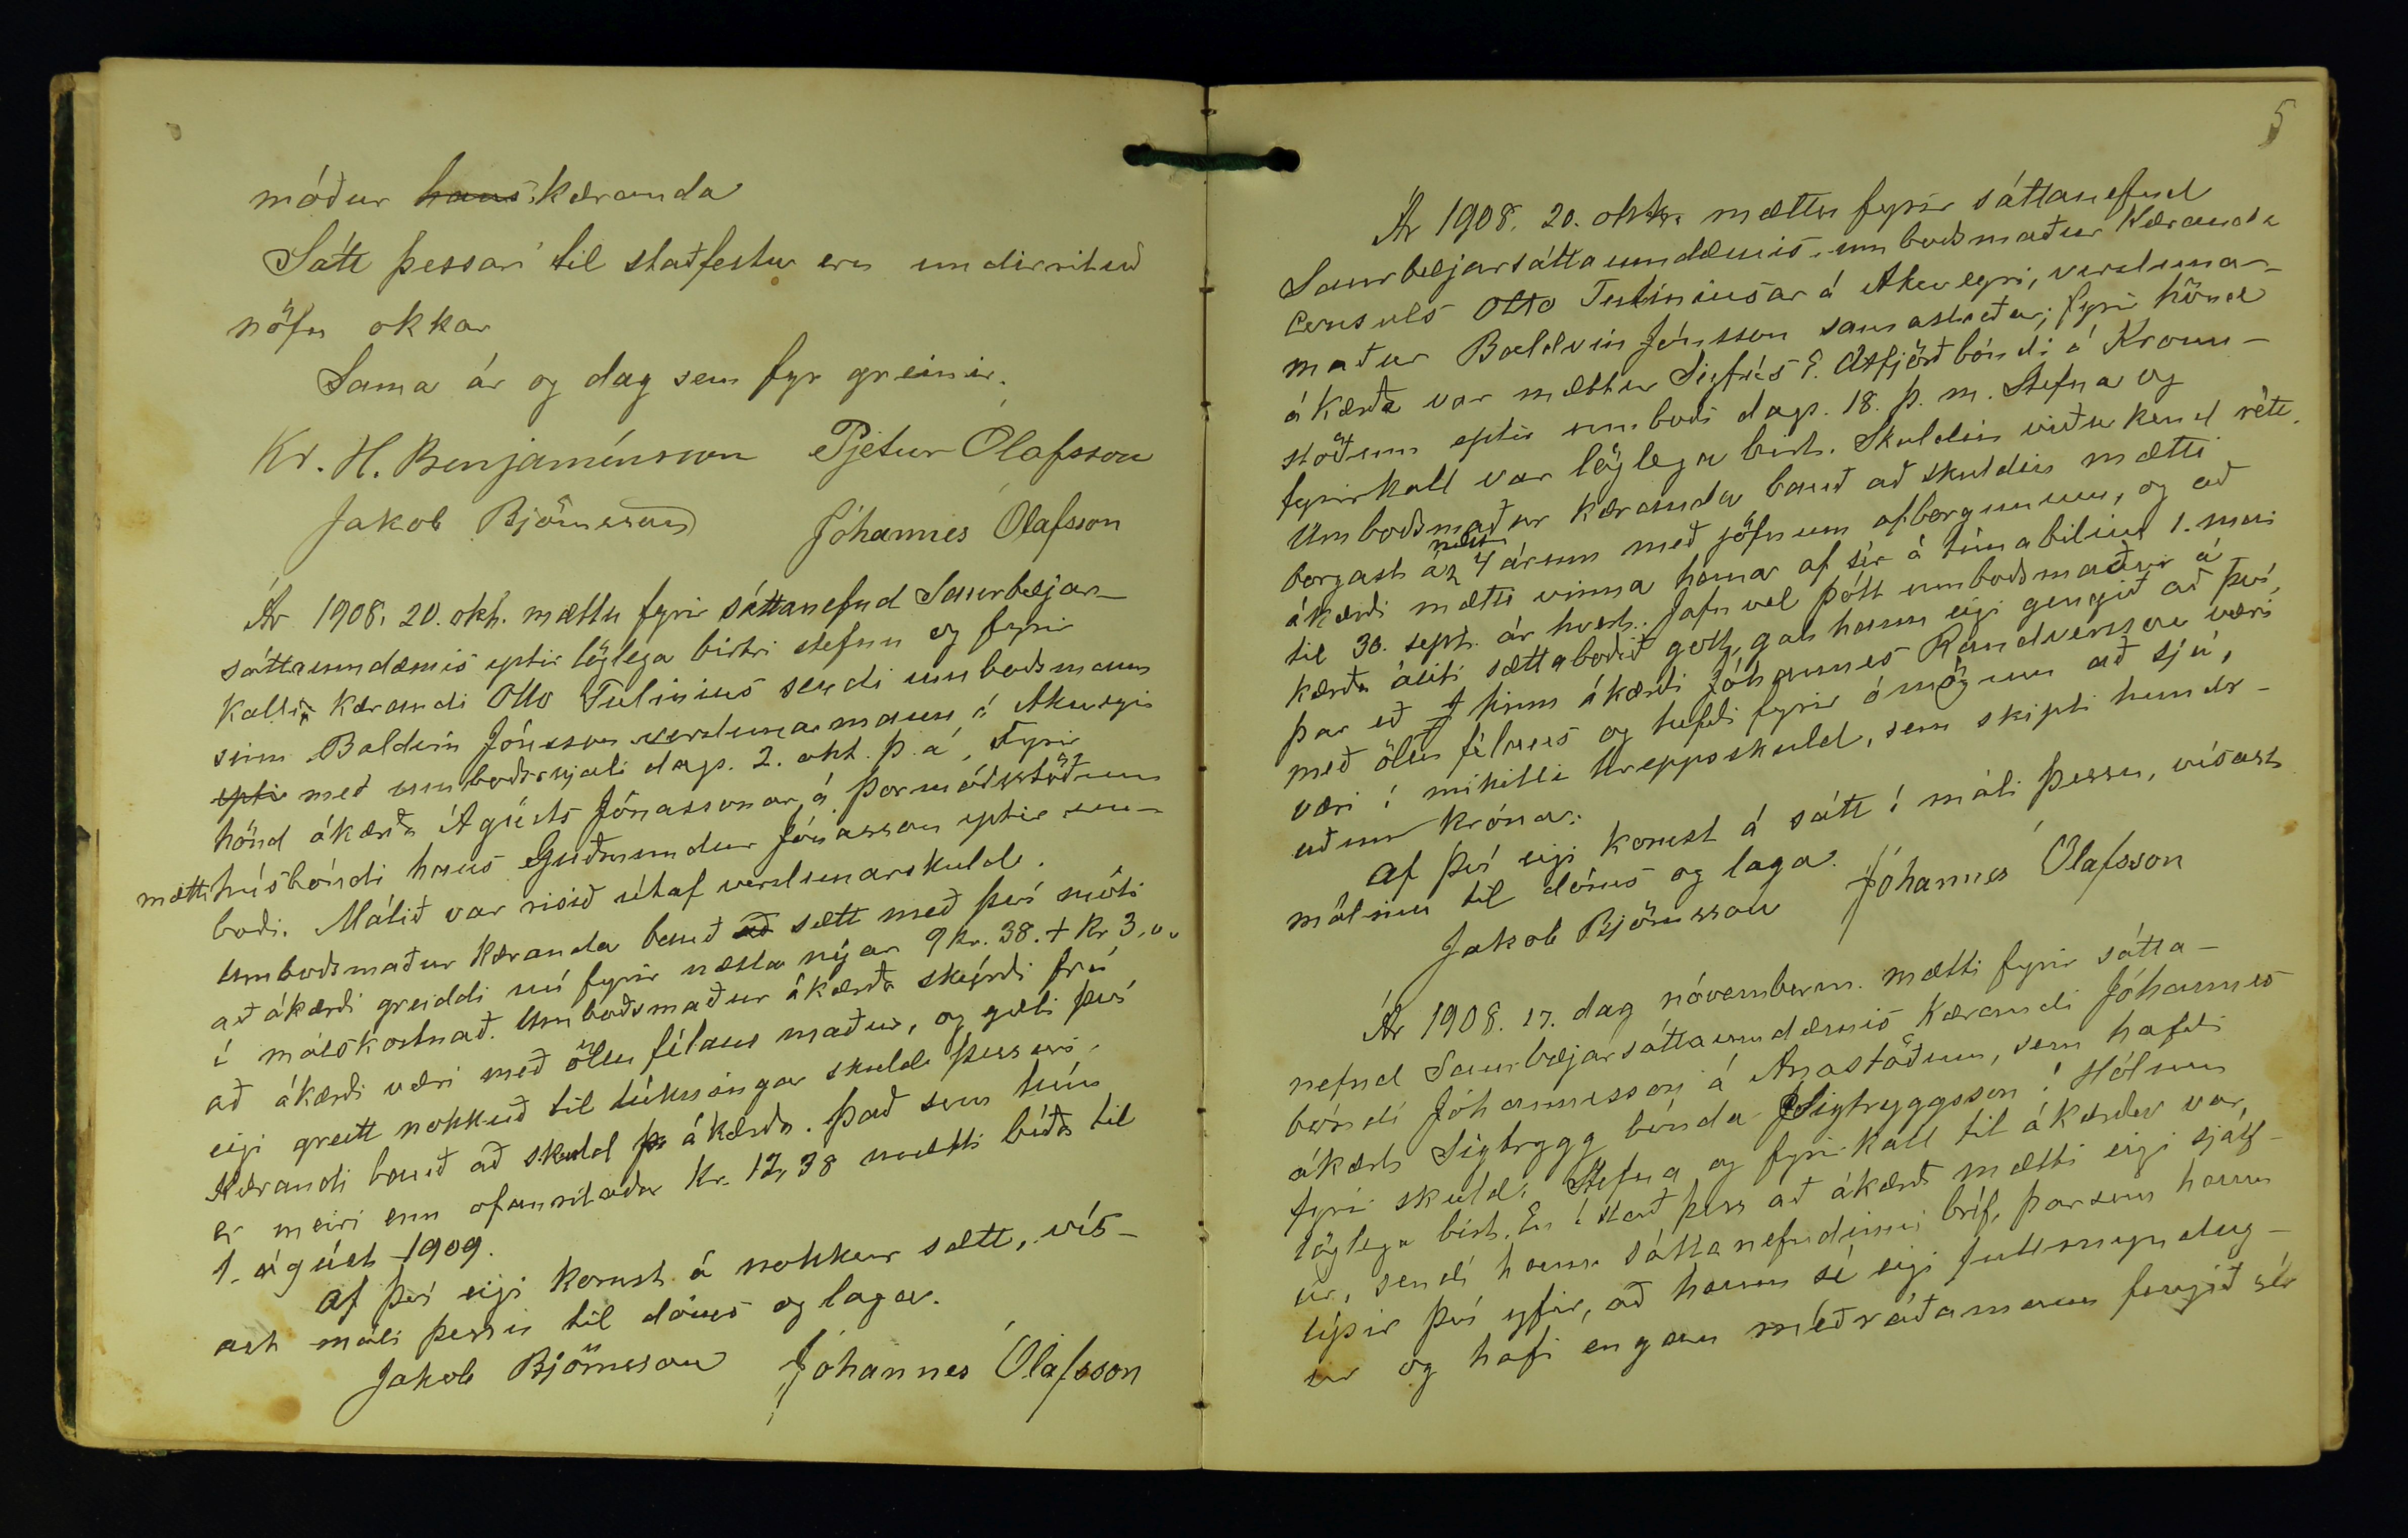 móður hans kæranda
Sátt þessari til staðfestu eru undirrituð
nöfn okkar
Sama ár og dag sem fyr greinir.
Kr. H. Benjamínsson Pjetur Ólafsson
Jakob Björnsson Jóhannes Ólafsson
Ár 1908, 20. okt. mættu fyrir sáttanefnd Saurbæjar-
sáttaumdæmis eptir löglega birtri stefnu og fyrir
kalli kærandi Otto Tulinius sendi umboðsmann
sinn Baldvin Jónsson verslunarmann á Akureyri
eptir með umboðsskjali dags. 2. okt. þ. á, Fyrir
hönd ákærða Ágústs Jónassonar á Þormóðsstöðum
mætti húsbóndi hans Guðmundur Jónasson eptir um-
boði. Málið var risið útaf verslunarskuld.
Umboðsmaður kæranda bauð að sætt með því móti
að ákærði greiddi nú fyrir næsta nýar 9 kr. 38. + kr 3,00
í málskostnað. Umboðsmaður ákærða skýrði frá
að ákærði væri með öllu félaus maður, og gæti því
eigi greitt nokkuð til lúkningar skuld þessari.
Kærandi bauð að skuld þr ákærða. það sem hún
er meiri enn ofanritaðar Kr. 12,38 mætti bíða til
1. ágúst 1909.
Af því eigi komst á nokkur sætt, vís-
ast máli þessu til dóms og laga.
Jakob Björnsson Jóhannes Ólafsson
5
Ár 1908. 20. oktbr. mættu fyrir sáttanefnd
Saurbæjarsáttaumdæmis. umboðsmaður Kæranda
Consuls Otto Tuliniusar á Akureyri, versluna-
maður Baldvin Jónsson samastaðar; fyrir hönd
ákærða var mættur Sigfús E. Axfjörð bóndi á Krónu-
stöðum eptir umboði dags. 18. þ. m. Stefna og
fyrirkall var löglega birt. Skuldin viðurkend rétt.
Umboðsmaður kæranda bauð að skuldin mætti
borgast á næstu 4 árum með jöfnum afborgunum, og að
ákærði mætti vinna hana af sér á tímabilinu 1. mai
til 30. sept. ár hvert. Jafnvel þótt umboðsmaður á
kærða áliti sættaboðið gott, gat hann eigi gengið að því,
þar eð hinn ákærði Jóhannes Randversson væri
með öllu félaus og hefði fyrir ómögum að sjá,
væri í mikilli hreppsskuld, sem skipti hundr-
uðum króna.
Af því eigi komst á sátt í máli þessu, vísast
málinu til dóms og laga.
Jakob Björnsson Jóhannes Ólafsson
Ár 1908. 17. dag nóvemberm. mætti fyrir sátta-
nefnd Saurbæjarsáttaumdæmis kærandi Jóhannes
bóndi Jóhannesson á Arnastöðum, sem hafði
ákært Sigtrygg bónda Sigtryggsson í Hólum
fyrir skuld. Stefna og fyrirkall til ákærða var
löglega birt. En í stað þess að ákærði mætti eigi sjálf-
ur, sendi hann sáttanefndinni bréf, þar sem hann
lýsir því yfir, að hann sé eigi fullmyndug-
ur og hafi engan meðráðamann fengið sér